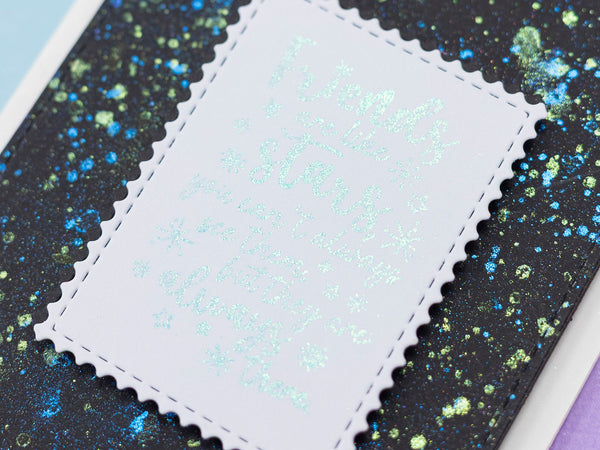 Friends
are like
stars
you can't always
see them
but they are
always
there